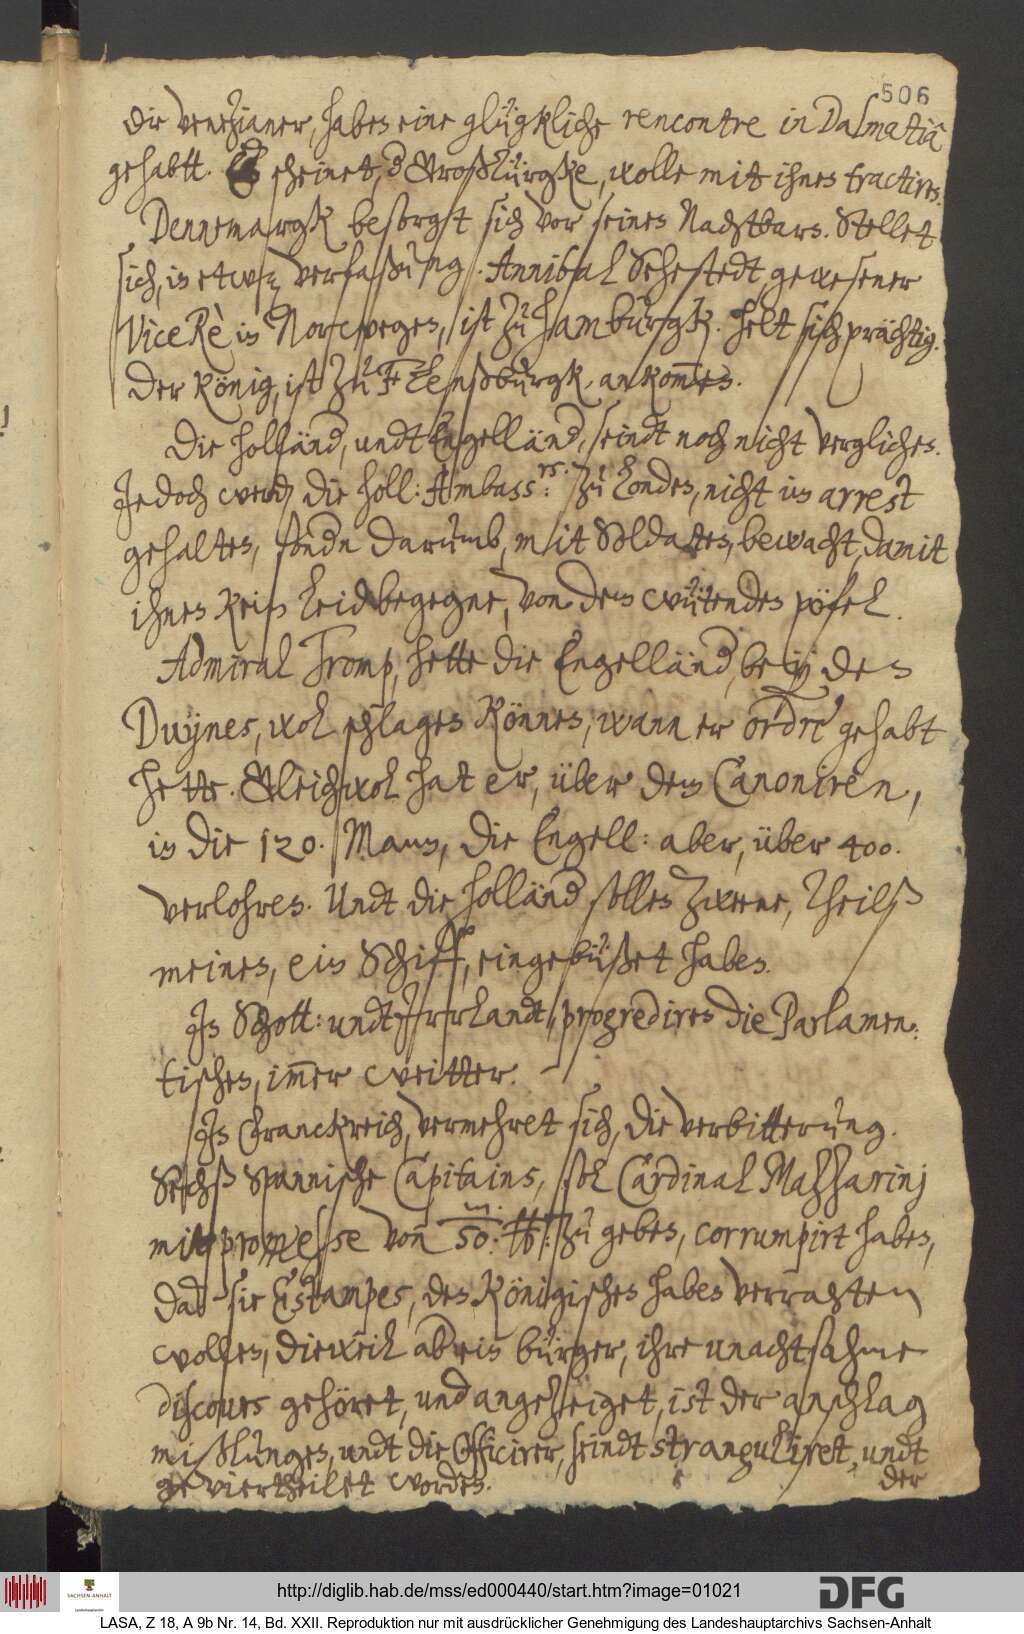 506
die Venezianer, haben eine glügkliche rencontre in Dalmatia
gehabtt. Es scheinet, der GroßTürgke, wolle mit ihnen tractiren.
Dennemargk besorgst sich vor seinen Nachtbarn. Stellet
sich, in etwaß verfaßung. Annibal Sehestedt, gewesener
Vice Rè in Norwegen, ist zu Hamburgk. Helt sich prächtig.
Der König, ist zu Flenßburgk, ankommen.
Die Holländer, undt Engelländer, seindt noch nicht verglichen.
Jedoch werden die Holl: Ambass:rs. zu Londen, nicht im arrest
gehalten, sondern darumb, mit Soldaten, bewacht, damit
ihnen kein leid begegne, von dem wütenden pöfel.
Admiral Tromp, hette die Engelländer, bey den
Duynes, wol schlagen können, wann er ordre gehabt
hette. Gleichwol hat er, über dem Canoniren,
in die 120. Mann, die Engell: aber, über 400.
verlohren. Undt die Holländer sollen zweene, theilß
meinen, ein Schiff, eingebüßet haben.
In Schott: undt Irrlandt, progrediren die Parlamen:
tischen, immer weitter.
In Franckreich, vermehret sich, die verbitterung.
Sechß Spannische Capitains, sol Cardinal Mazzarinj
mit promesse von 50:m. {tt}: zu geben, corrumpirt haben,
daß sie Estampes, den Königischen haben verrahten
wollen, dieweil aber ein bürger, ihre unachtsahme
discours gehöret, und angezeiget, ist der anschlag
mißlungen, undt die Officirer, seindt stranguliret, undt
geviertheilet worden.
der
http://diglib.hab.de/mss/ed000440/start.htm?image=01021
DFG
SACHSEN-ANHALT
LASA, Z 18, A 9b Nr. 14, Bd. XXII. Reproduktion nur mit ausdrücklicher Genehmigung des Landeshauptarchivs Sachsen-Anhalt